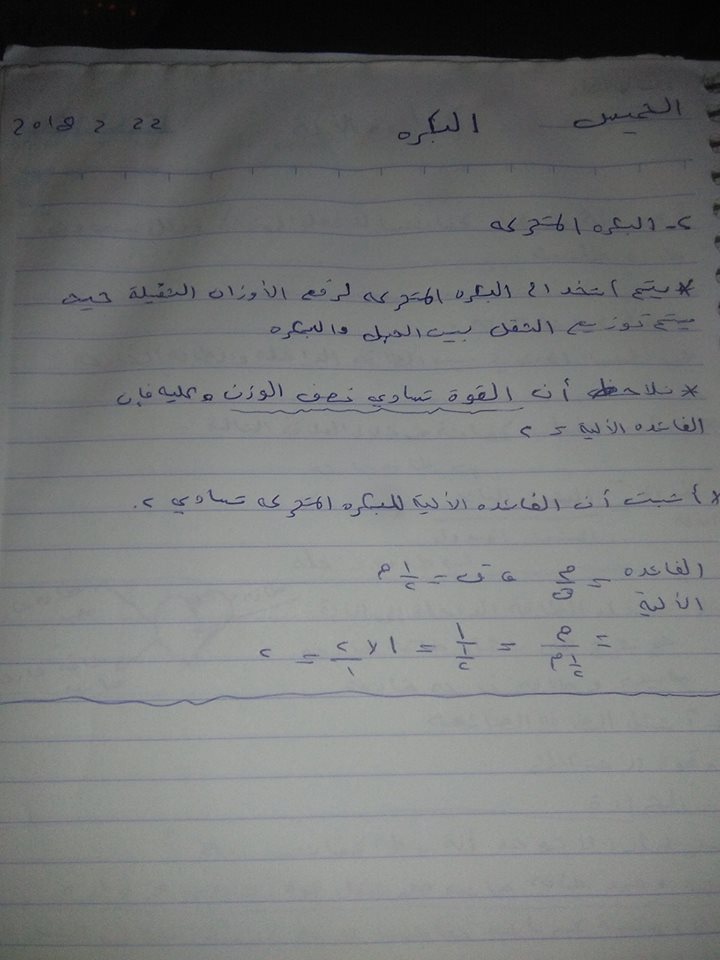 الخميس البكره 22 2 2018
2- البكره المتحركه
* يتم استخدام البكره المتحركه لرفع الأوزان الثقيلة حيث
يتم توزيع الثقل بين الحبل والبكره
* نلاحظ أن القوة تساوي نصف الوزن وعليه فإن
الفائده الألية = ٢
* أثبت أن الفائده الألية للبكره المتحركه تساوي ٢.
الفائده الألية = م/ق ، ق = ١/٢ م
= م / ١/٢ م = ١ / ١/٢ = ١ × ٢/١ = ٢